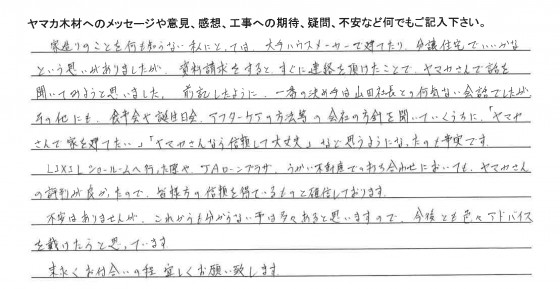 ヤマカ木材へのメッセージや意見、感想、工事への期待、疑問、不安など何でもご記入下さい。
家造りのことを何も知らない私にとっては、大手ハウスメーカーで建てたり、分譲住宅でいいかな
という思いがありましたが、資料請求をするとすぐに連絡を頂けたことで、ヤマカさんで話を
聞いてみようと思いました。前記したように、一番の決め手は山田社長との何気ない会話でしたが、
その他にも、食事会や誕生日会、アフターケアの方法等の会社の方針を聞いていくうちに、「ヤマカ
さんで家を建てたい」「ヤマカさんなら信頼して大丈夫」など思うようになったのも事実です。
LIXILショールームへ行った際や、JAローンプラザ、うかい不動産での打ち合わせにおいても、ヤマカさん
の評判が良かったので、皆様方の信頼を得ているものと確信しております。
不安はありませんが、これからも分からない事は多々あると思いますので、今後とも色々アドバイス
を戴けたらと思っています。
末永くお付合いの程、宜しくお願い致します。